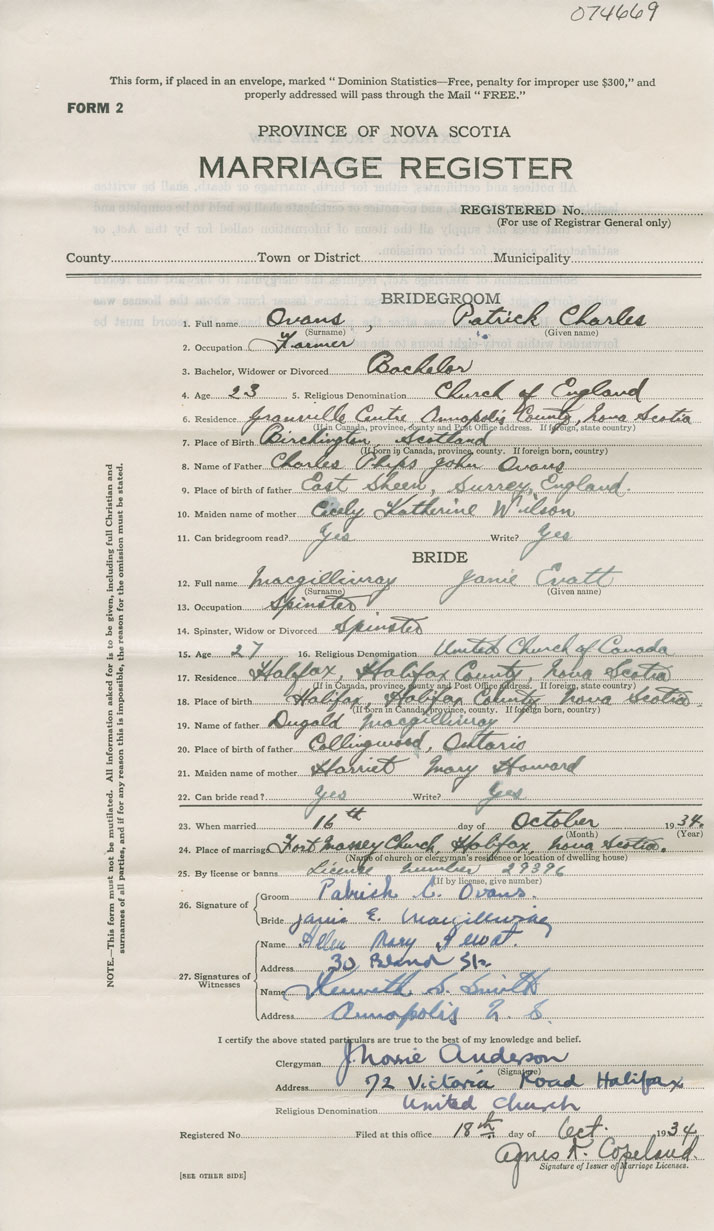 074669
This form, if placed in an envelope, marked " Dominion Statistics—Free, penalty for improper use $300," and
properly addressed will pass through the Mail " FREE."
FORM 2
PROVINCE OF NOVA SCOTIA
MARRIAGE REGISTER
REGISTERED No.
(For use of Registrar General only)
County Town or District Municipality
BRIDEGROOM
1. Full name Ovans, Patrick Charles
(Surname) (Given name)
2. Occupation Farmer
3. Bachelor, Widower or Divorced Bachelor
4. Age 23 5. Religious Denomination Church of England
6. Residence Granville Centre Annapolis County, Nova Scotia
(If in Canada, province, county and Post Office address. If foreign, state country)
7. Place of Birth Birchington, Scotland
(If born in Canada, province, county. If foreign born, country)
8. Name of Father Charles Phips John Ovans
9. Place of birth of father East Sheen, Surrey, England.
10. Maiden name of mother Cicely Katherine Wilson
11. Can bridegroom read? Yes Write? Yes
BRIDE
12. Full name Macgillivray Janie Evatt
(Surname) (Given name)
13. Occupation Spinster
14. Spinster, Widow or Divorced Spinster
15. Age 27 16. Religious Denomination United Church of Canada
17. Residence Halifax, Halifax County, Nova Scotia
(If in Canada, province, county and Post Office address. If foreign, state country)
18. Place of birth Halifax, Halifax County Nova Scotia.
(If born in Canada, province, county. If foreign born, country)
19. Name of father Dugald Macgillivray
20. Place of birth of father Collingwood, Ontario
21. Maiden name of mother Harriet Mary Howard
22. Can bride read? Yes Write? Yes
23. When married 16th day of October 1934.
(Month) (Year)
24. Place of marriage Fort Massey Church, Halifax, Nova Scotia.
(Name of church or clergyman's residence or location of dwelling house)
25. By license or banns License number 29396
(If by license, give number)
26. Signature of Groom Patrick C. Ovans.
Bride Janie E. Macgillivray
27. Signatures of Witnesses
Name Helen Mary
Address 30 Bland St.
Name Kenneth S. Smith
Address Annapolis N. S.
I certify the above stated particulars are true to the best of my knowledge and belief.
Clergyman Anderson
(Signature)
Address 72 Victoria Road Halifax
Religious Denomination United Church
Registered No. Filed at this office 18th day of Oct. 1934
Agnes K. Copeland
Signature of Issuer of Marriage Licenses.
[SEE OTHER SIDE]
NOTE.—This form must not be mutilated. All information asked for is to be given, including full Christian and
surnames of all parties, and if for any reason this is impossible, the reason for the omission must be stated.